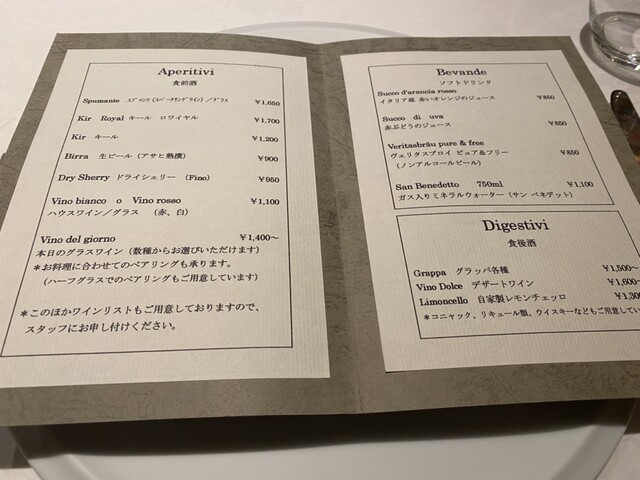 Aperitivi
食前酒
Spumante スプマンテ（スパークリングワイン）／グラス ￥1,650
Kir Royal キール ロワイヤル ￥1,700
Kir キール ￥1,200
Birra 生ビール（アサヒ熟撰） ￥900
Dry Sherry ドライシェリー （Fino） ￥950
Vino bianco o Vino rosso ￥1,100
ハウスワイン／グラス （赤、白）
Vino del giorno ￥1,400〜
本日のグラスワイン（数種からお選びいただけます）
＊お料理に合わせてのペアリングも承ります。
（ハーフグラスでのペアリングもご用意しています）
＊このほかワインリストもご用意しておりますので、
スタッフにお申し付けください。
Bevande
ソフトドリンク
Succo d'arancia rosso
イタリア産 赤いオレンジのジュース ￥850
Succo di uva
赤ぶどうのジュース ￥850
Veritasbräu pure & free
ヴェリタスブロイ ピュア＆フリー ￥850
（ノンアルコールビール）
San Benedetto 750ml
ガス入りミネラルウォーター（サン ベネデット） ￥1,100
Digestivi
食後酒
Grappa グラッパ各種 ￥1,500〜
Vino Dolce デザートワイン ￥1,600〜
Limoncello 自家製レモンチェッロ ￥1,300
＊コニャック、リキュール類、ウイスキーなどもご用意してい